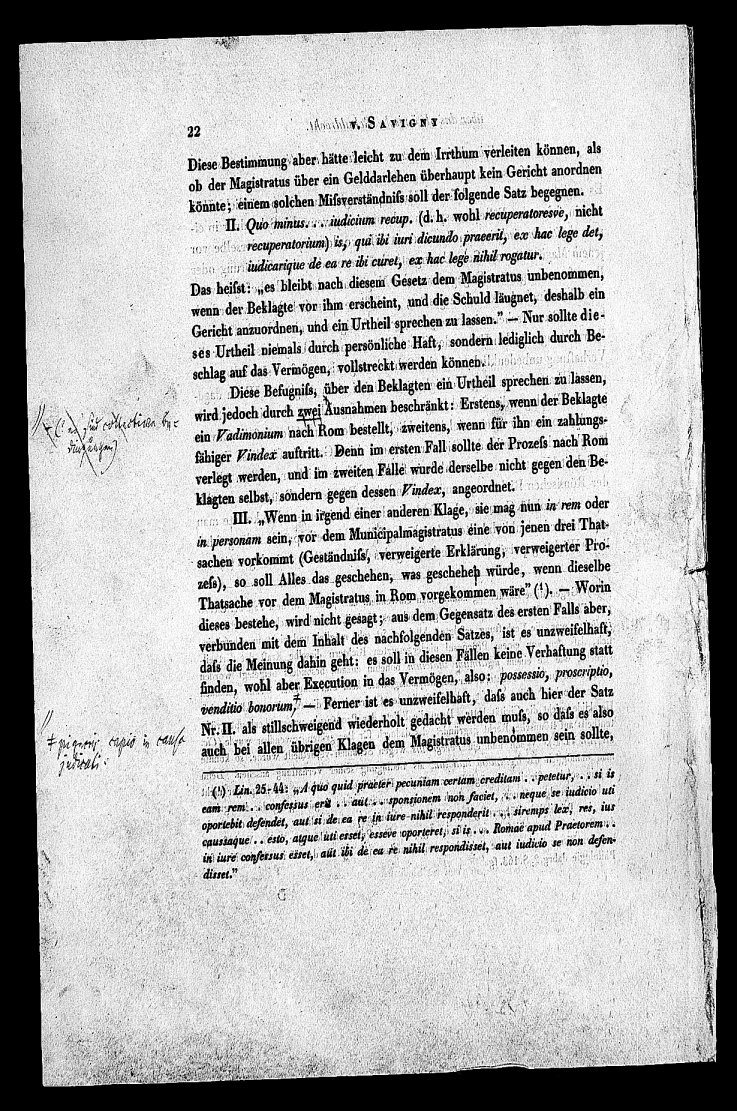 22
v. SAVIGNY
Diese Bestimmung aber hätte leicht zu dem Irrthum verleiten können, als
ob der Magistratus über ein Gelddarlehen überhaupt kein Gericht anordnen
könnte; einem solchen Mifsverständnifs soll der folgende Satz begegnen.
II. Quo minus. . . iudicium recup. (d. h. wohl recuperatoresve, nicht
recuperatorium) is, qui ibi iuri dicundo praeerit, ex hac lege det,
iudicarique de ea re ibi curet, ex hac lege nihil rogatur.
Das heifst: „es bleibt nach diesem Gesetz dem Magistratus unbenommen,
wenn der Beklagte vor ihm erscheint, und die Schuld läugnet, deshalb ein
Gericht anzuordnen, und ein Urtheil sprechen zu lassen.” — Nur sollte die-
ses Urtheil niemals durch persönliche Haft, sondern lediglich durch Be-
schlag auf das Vermögen, vollstreckt werden können.
Diese Befugnifs, über den Beklagten ein Urtheil sprechen zu lassen,
wird jedoch durch zwei Ausnahmen beschränkt: Erstens, wenn der Beklagte
ein Vadimonium nach Rom bestellt, zweitens, wenn für ihn ein zahlungs-
fähiger Vindex auftritt. Denn im ersten Fall sollte der Prozefs nach Rom
verlegt werden, und im zweiten Falle wurde derselbe nicht gegen den Be-
klagten selbst, sondern gegen dessen Vindex, angeordnet.
III. „Wenn in irgend einer anderen Klage, sie mag nun in rem oder
in personam sein, vor dem Municipalmagistratus eine von jenen drei That-
sachen vorkommt (Geständnifs, verweigerte Erklärung, verweigerter Pro-
zefs), so soll Alles das geschehen, was geschehen würde, wenn dieselbe
Thatsache vor dem Magistratus in Rom vorgekommen wäre” (¹). — Worin
dieses bestehe, wird nicht gesagt; aus dem Gegensatz des ersten Falls aber,
verbunden mit dem Inhalt des nachfolgenden Satzes, ist es unzweifelhaft,
dafs die Meinung dahin geht: es soll in diesen Fällen keine Verhaftung statt
finden, wohl aber Execution in das Vermögen, also: possessio, proscriptio,
venditio bonorum. — Ferner ist es unzweifelhaft, dafs auch hier der Satz
Nr. II. als stillschweigend wiederholt gedacht werden mufs, so dafs es also
auch bei allen übrigen Klagen dem Magistratus unbenommen sein sollte,
pignoris capio in causa
judicati.
(¹) Lin. 25-44: „A quo quid praeter pecuniam certam creditam . . petetur, . . si is
eam rem . . confessus erit . . aut . . sponsionem non faciet, . . neque se iudicio uti
oportebit defendet, aut si de ea re in iure nihil responderit . . siremps lex, res, ius
caussaque . . esto, atque uti esset, esseve oporteret, si is . . . Romae apud Praetorem . .
in iure confessus esset, aut ibi de ea re nihil respondisset, aut iudicio se non defen-
disset.”